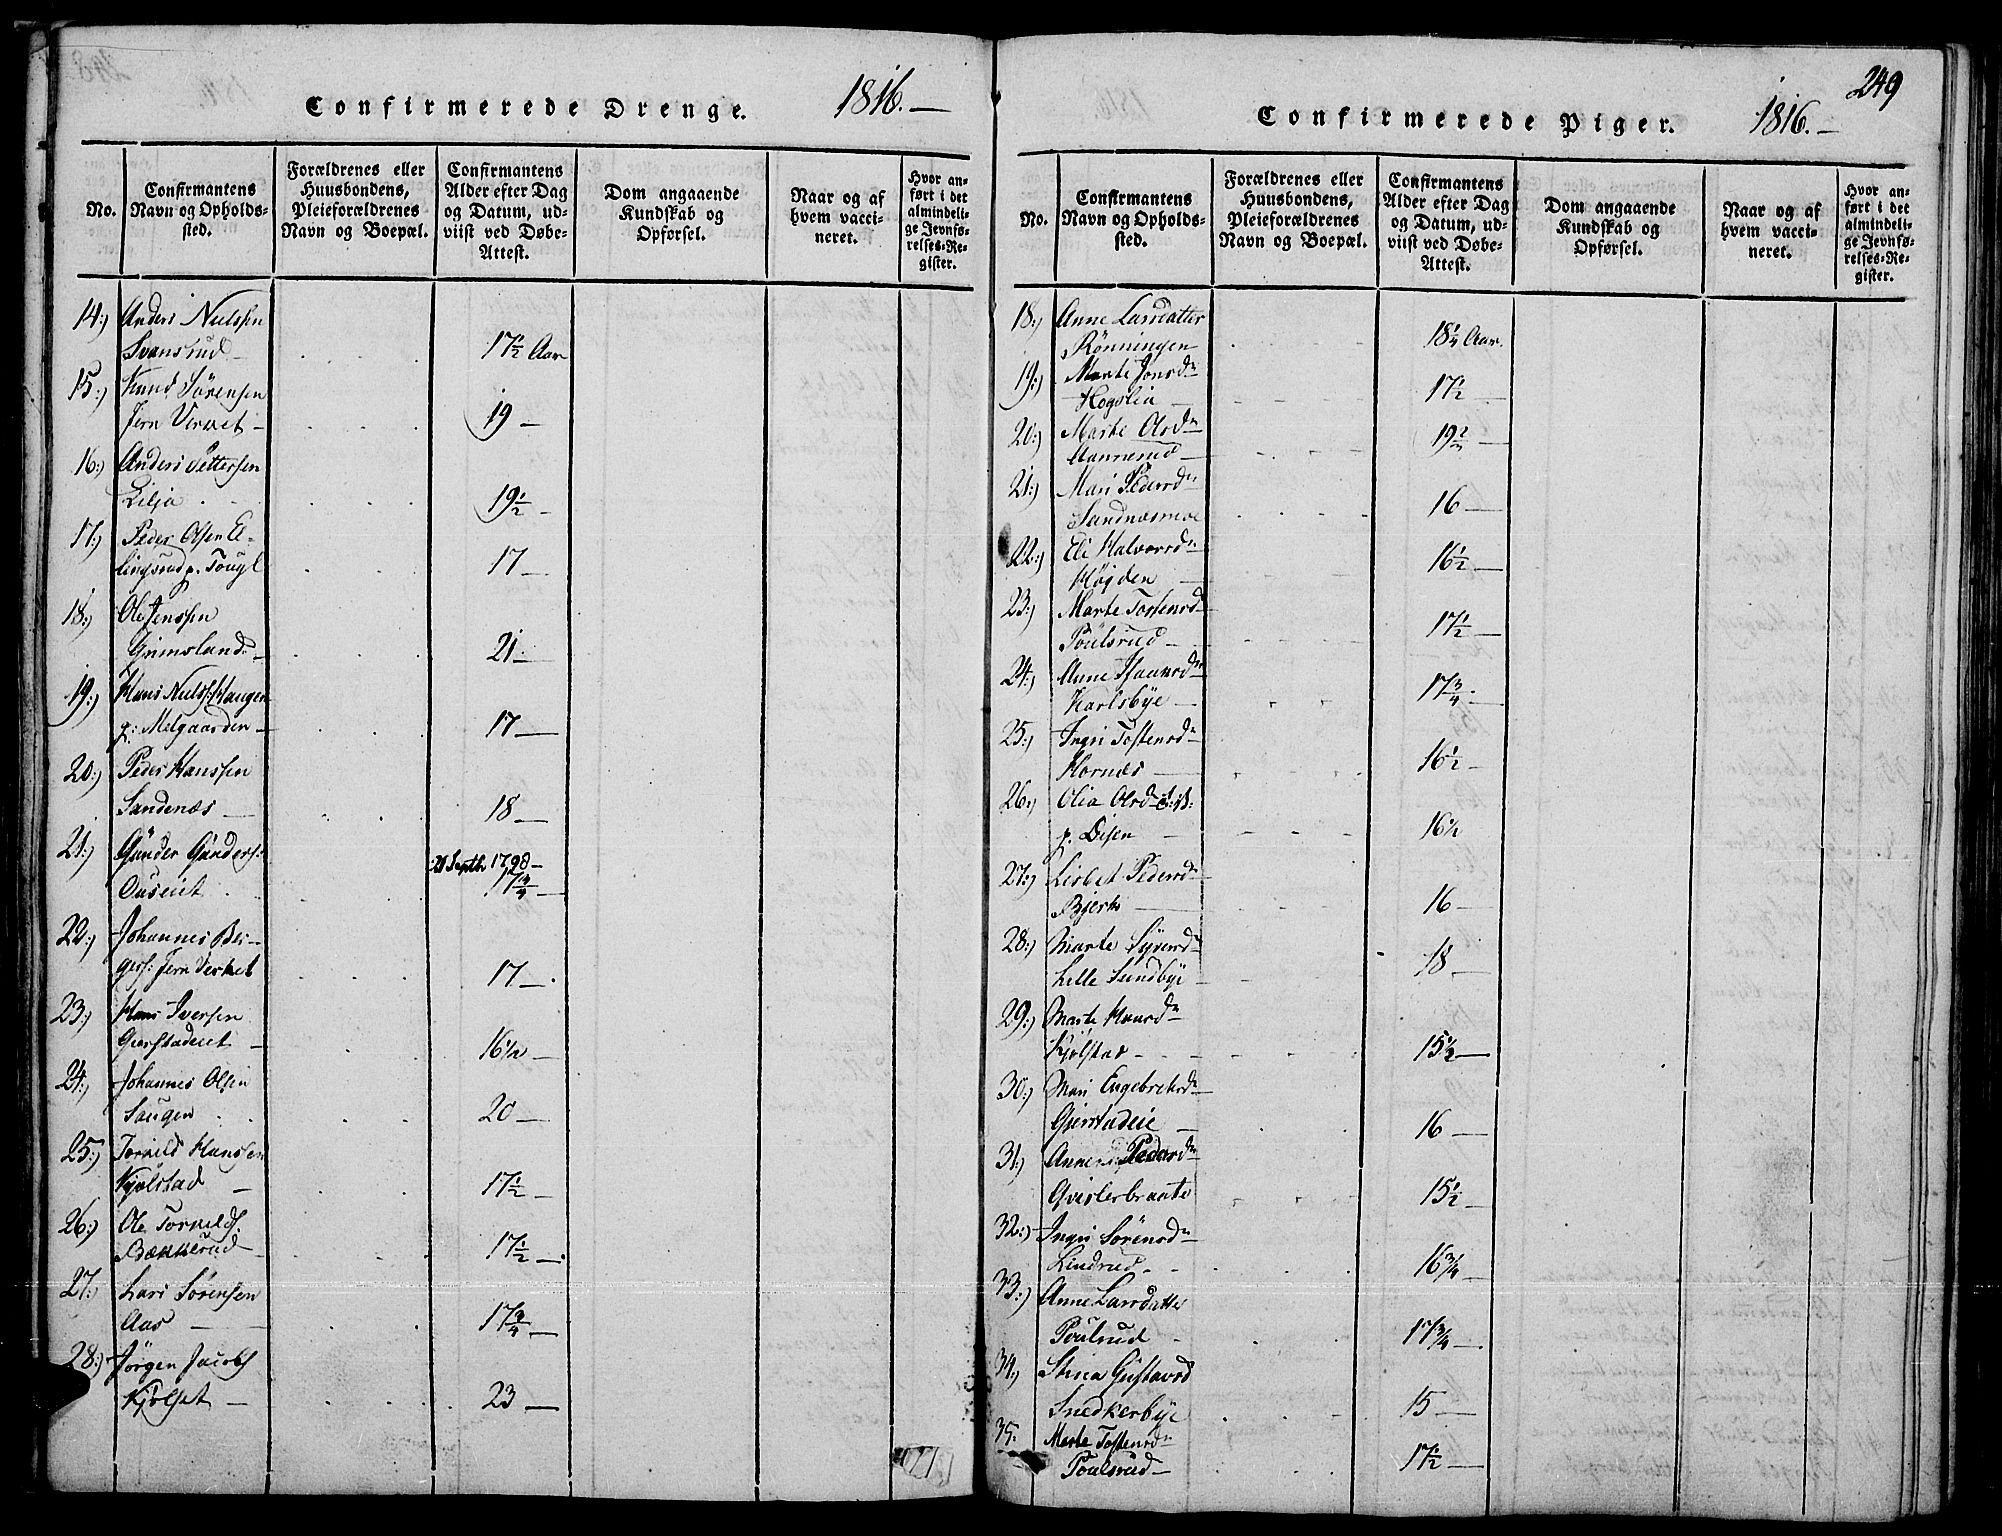 Confirmerede Drenge. 1816.—
No.
Confirmantens Navn og Opholds-sted.
Forældrenes eller Huusbondens, Pleieforældrenes Navn og Boepæl.
Confirmantens Alder efter Dag og Datum, ud-viist ved Døbe-Attest.
Dom angaaende Kundskab og Opførsel.
Naar og af hvem vacci-neret.
Hvor an-ført i det almindeli-ge Jevnfø-relses-Re-gister.
14:) Anders Nielssen
Svansrud — 17½ Aar
15:) Knud Sörensen
Jern Verket — 19 —
16:) Anders Pettersen
Lilja 19½ —
17:) Peder Olsen El-
lingsrud p. Tougl 17 —
18:) Ole Jenssen
Grimsland — 21 —
19:) Hans Niels: Haugen
p: Melgaarden — 17 —
20:) Peder Hanssen
Sandenæs — 18 —
21:) Gúnder Gúnders:
20 Septbr 1798 —
17¾ —
22:) Johannes Bir-
gers: Jern Verket 17 —
23:) Hans Iversen
Gierstadeiet — 16½ —
24:) Johannes Olsen
Haugen 20 —
25:) Torkild Hanssen
Kjølstad — 17½ —
26:) Ole Torkilds.
Bækkerud — 17½ —
27:) Lars Sörensen
Aas — 17¾ —
28:) Jörgen Jacobs
Kjölset — 23 —
249
Confirmerede Piger. 1816.—
No.
Confirmantens Navn og Opholds-sted.
Forældrenes eller Huusbondens, Pleieforældrenes Navn og Boepæl.
Confirmantens Alder efter Dag og Datum, ud-viist ved Døbe-Attest.
Dom angaaende Kundskab og Opførsel.
Naar og af hvem vacci-neret.
Hvor an-ført i det almindeli-ge Jevnfø-relses-Re-gister.
18:) Anne Larsdatter
Rönningen 18¼ Aar.
19:) Marte Jonsdr
Hogslia — 17½ —
20:) Marte Olsdr
19½ —
21:) Mari Pedersdr
Sandnæsmoe 16 —
22:) Eli Halvorsdr
Høgden — 16½ —
23:) Marte Tostensd
Poúlsrud — 17½ —
24:) Anne Isaacsdr
Karlsbye — 17¾ —
25:) Ingri Tostensdr
Hornæs — 16½ —
26:) Olia Olsd
p. Disen — 16½ —
27:) Lisbet Pedersd
Bjerke — 16 —
28:) Marte Syversdr
Lille Sundbye — 18 —
29:) Marte Hansdr
Kjølstad — 15½ —
30:) Mari Engebretsdr
Gierstadeie — 16 —
31:) Anne Pedersdr
Qvisterbraate 15½ —
32:) Ingri Sörensdr
Lindrud — 16¾ —
33:) Anne Larsdatter
Poulsrud — 17¾ —
34:) Stina Gustavsd
Snedkerbye 15 —
35: Marte Tostensdr
Poulsrud — 17½ —